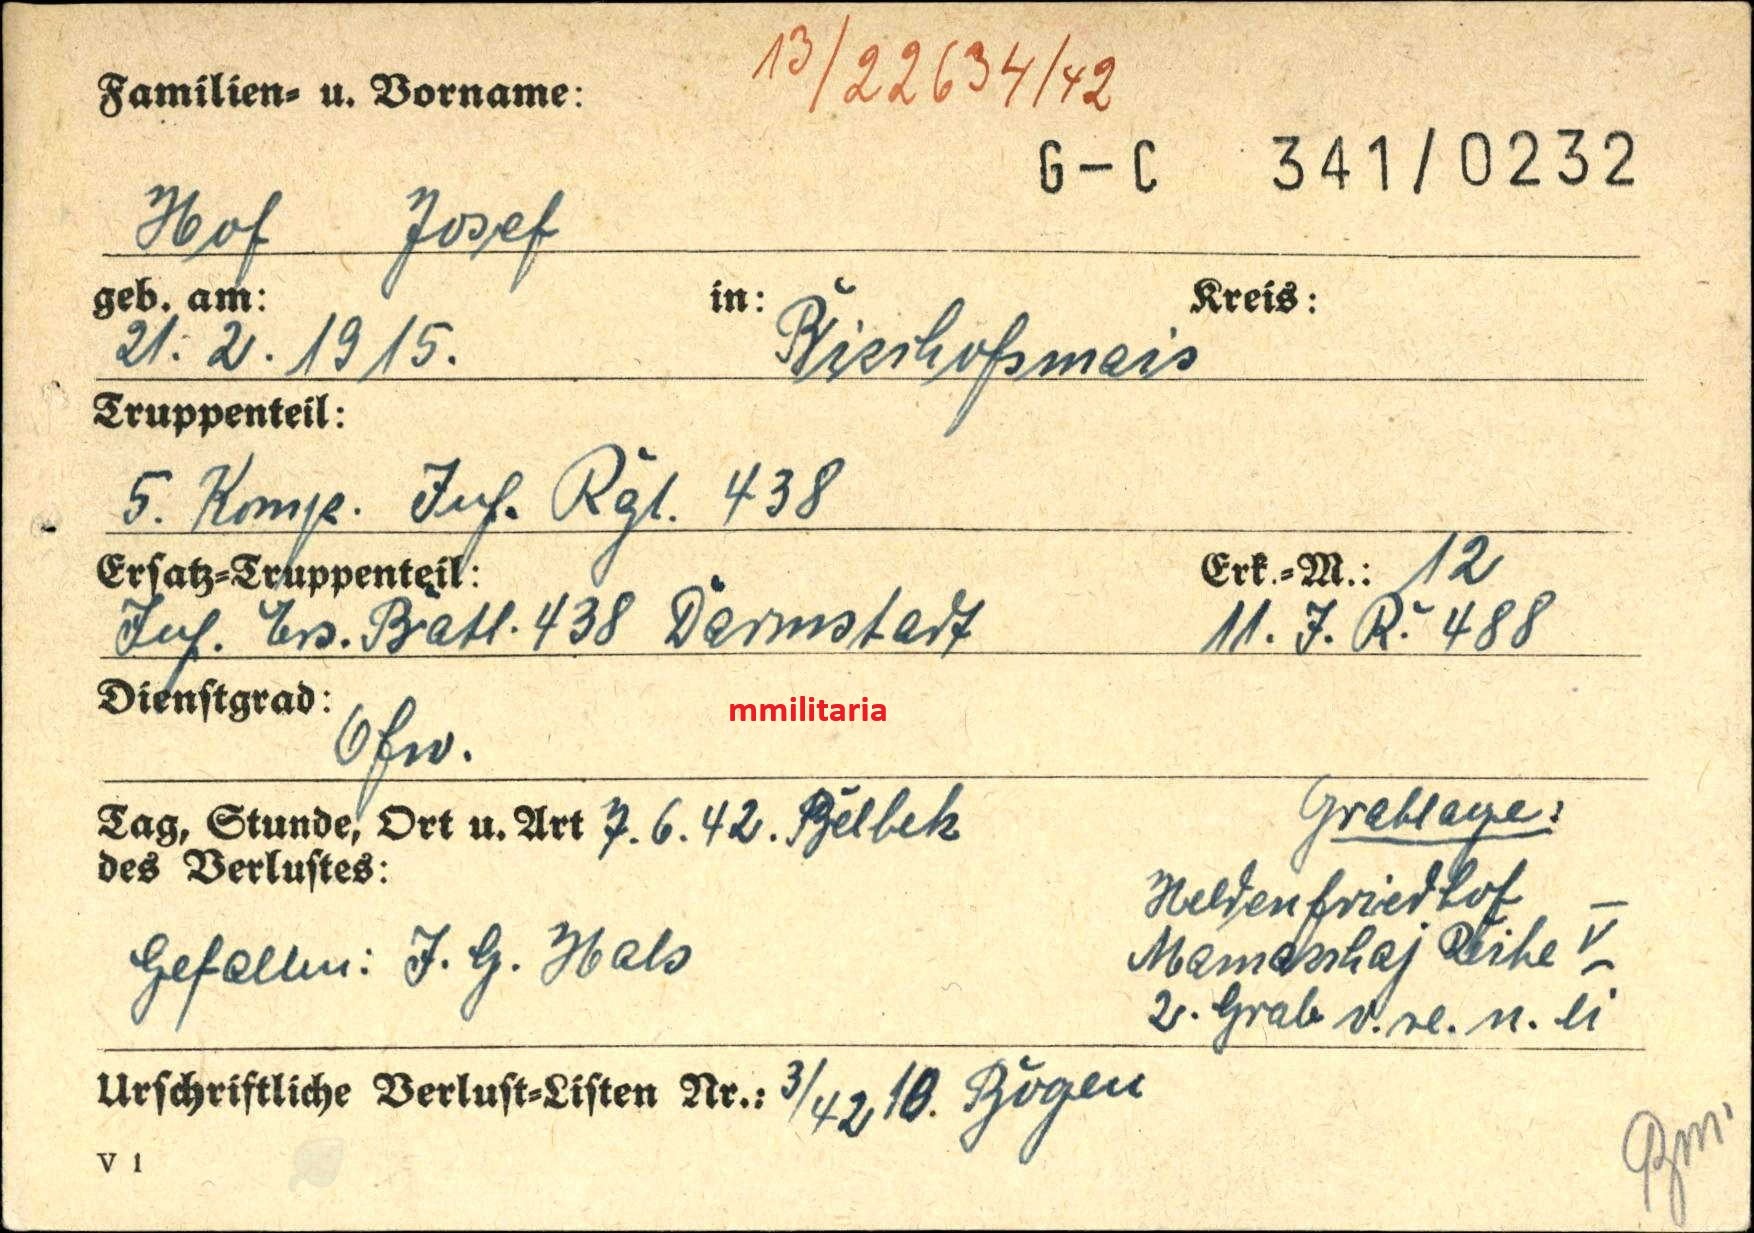 13/22634/42
Familien- u. Vorname:
G-C 341/0232
Hof Josef
geb. am: in: Kreis:
21. 2. 1915. Bischofsmais
Truppenteil:
5. Komp. Inf. Rgt. 438
Ersatz-Truppenteil: Erk.-M.: 12
Inf. Ers. Batl. 438 Darmstadt 11. I. R. 488
Dienstgrad:
mmilitaria
Ofw.
Tag, Stunde, Ort u. Art 7. 6. 42. Belbek
des Verlustes:
Grablage:
Heldenfriedhof
Gefallen: I. G. Hals
Mamaschaj Reihe V
2. Grab v. re. n. li
Urschriftliche Verlust-Listen Nr.: 3/42 10. Bogen
V 1